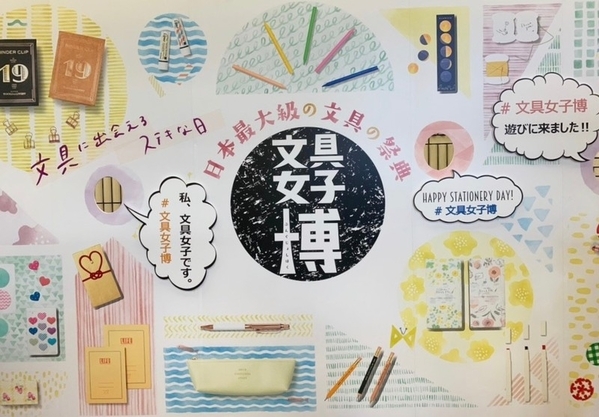 19
19
LIFE
LIFE
文具に出会える
ステキな日
日本最大級の文具の祭典
文具
女子
博
# 文具女子博
遊びに来ました!!
HAPPY STATIONERY DAY!
# 文具女子博
私、文具女子です。
# 文具女子博